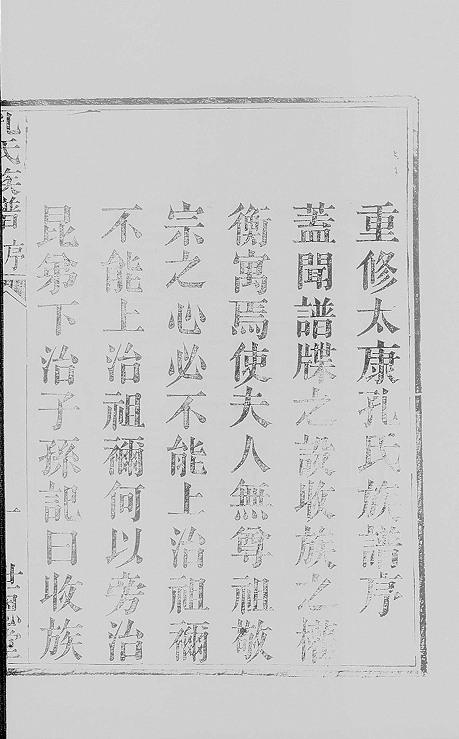 重修太康孔氏族譜序
蓋聞譜牒之設收族之權
衡寓焉使夫人無尊祖敬
宗之心必不能上治祖禰
不能上治祖禰何以旁治
昆第下治子孫記曰收族
孔氏族譜 序 一